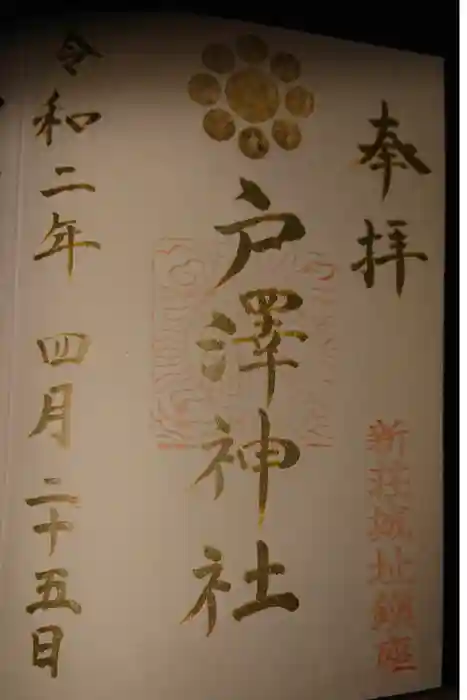 奉拝
新荘城址鎮座
戸澤神社
令和二年 四月二十五日